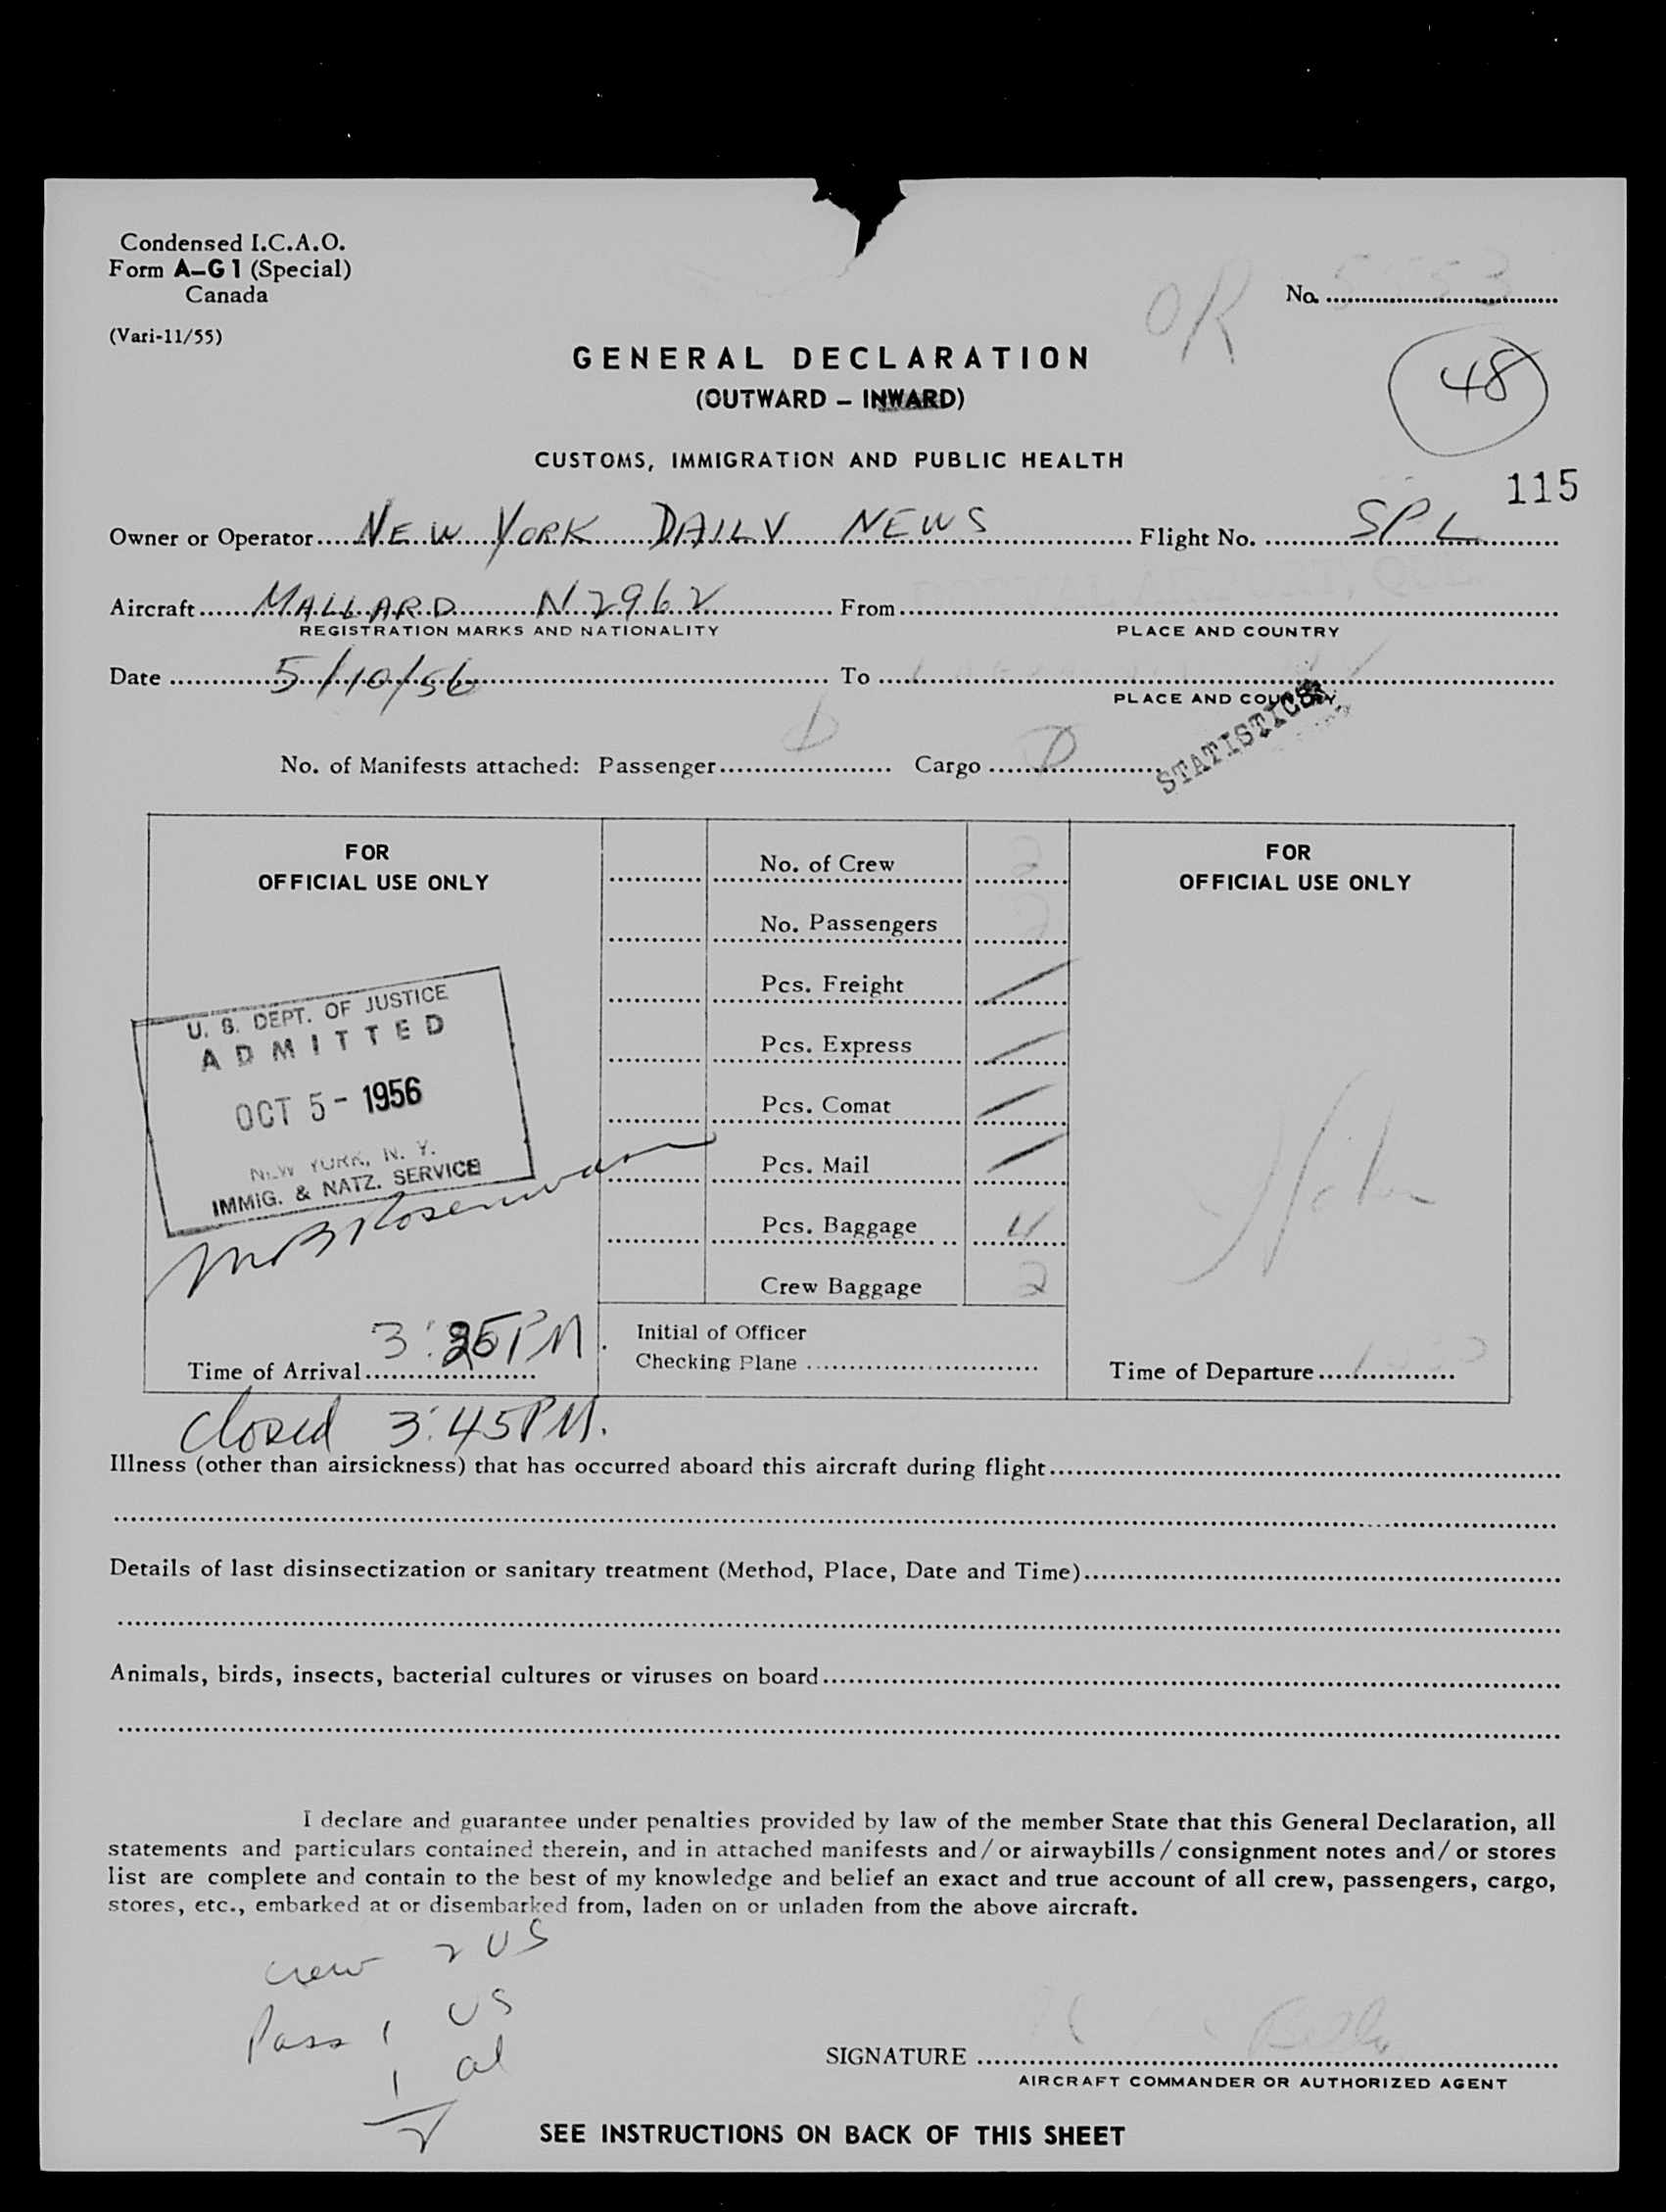 Condensed I.C.A.O.
Form A-G 1 (Special)
Canada
(Vari-11/55)
OK
No.
GENERAL DECLARATION
(OUTWARD – INWARD)
48
CUSTOMS, IMMIGRATION AND PUBLIC HEALTH
115
Owner or Operator NEW YORK DAILY NEWS Flight No. SPL
Aircraft MALLARD N2962 From
REGISTRATION MARKS AND NATIONALITY PLACE AND COUNTRY
Date 5/10/56 To
PLACE AND COUNTRY
STATISTICS
No. of Manifests attached: Passenger Cargo
FOR
OFFICIAL USE ONLY
No. of Crew 2
No. Passengers 2
Pcs. Freight
Pcs. Express
Pcs. Comat
Pcs. Mail
Pcs. Baggage
Crew Baggage 2
FOR
OFFICIAL USE ONLY
U. S. DEPT. OF JUSTICE
ADMITTED
OCT 5 - 1956
NEW YORK, N. Y.
IMMIG. & NATZ. SERVICE
Time of Arrival 3:35 PM.
Initial of Officer
Checking Plane
Time of Departure
Closed 3:45 PM.
Illness (other than airsickness) that has occurred aboard this aircraft during flight
Details of last disinsectization or sanitary treatment (Method, Place, Date and Time)
Animals, birds, insects, bacterial cultures or viruses on board
I declare and guarantee under penalties provided by law of the member State that this General Declaration, all
statements and particulars contained therein, and in attached manifests and/or airwaybills/consignment notes and/or stores
list are complete and contain to the best of my knowledge and belief an exact and true account of all crew, passengers, cargo,
stores, etc., embarked at or disembarked from, laden on or unladen from the above aircraft.
crew 2 US
Pass 1 US
1 al
2
SIGNATURE
AIRCRAFT COMMANDER OR AUTHORIZED AGENT
SEE INSTRUCTIONS ON BACK OF THIS SHEET